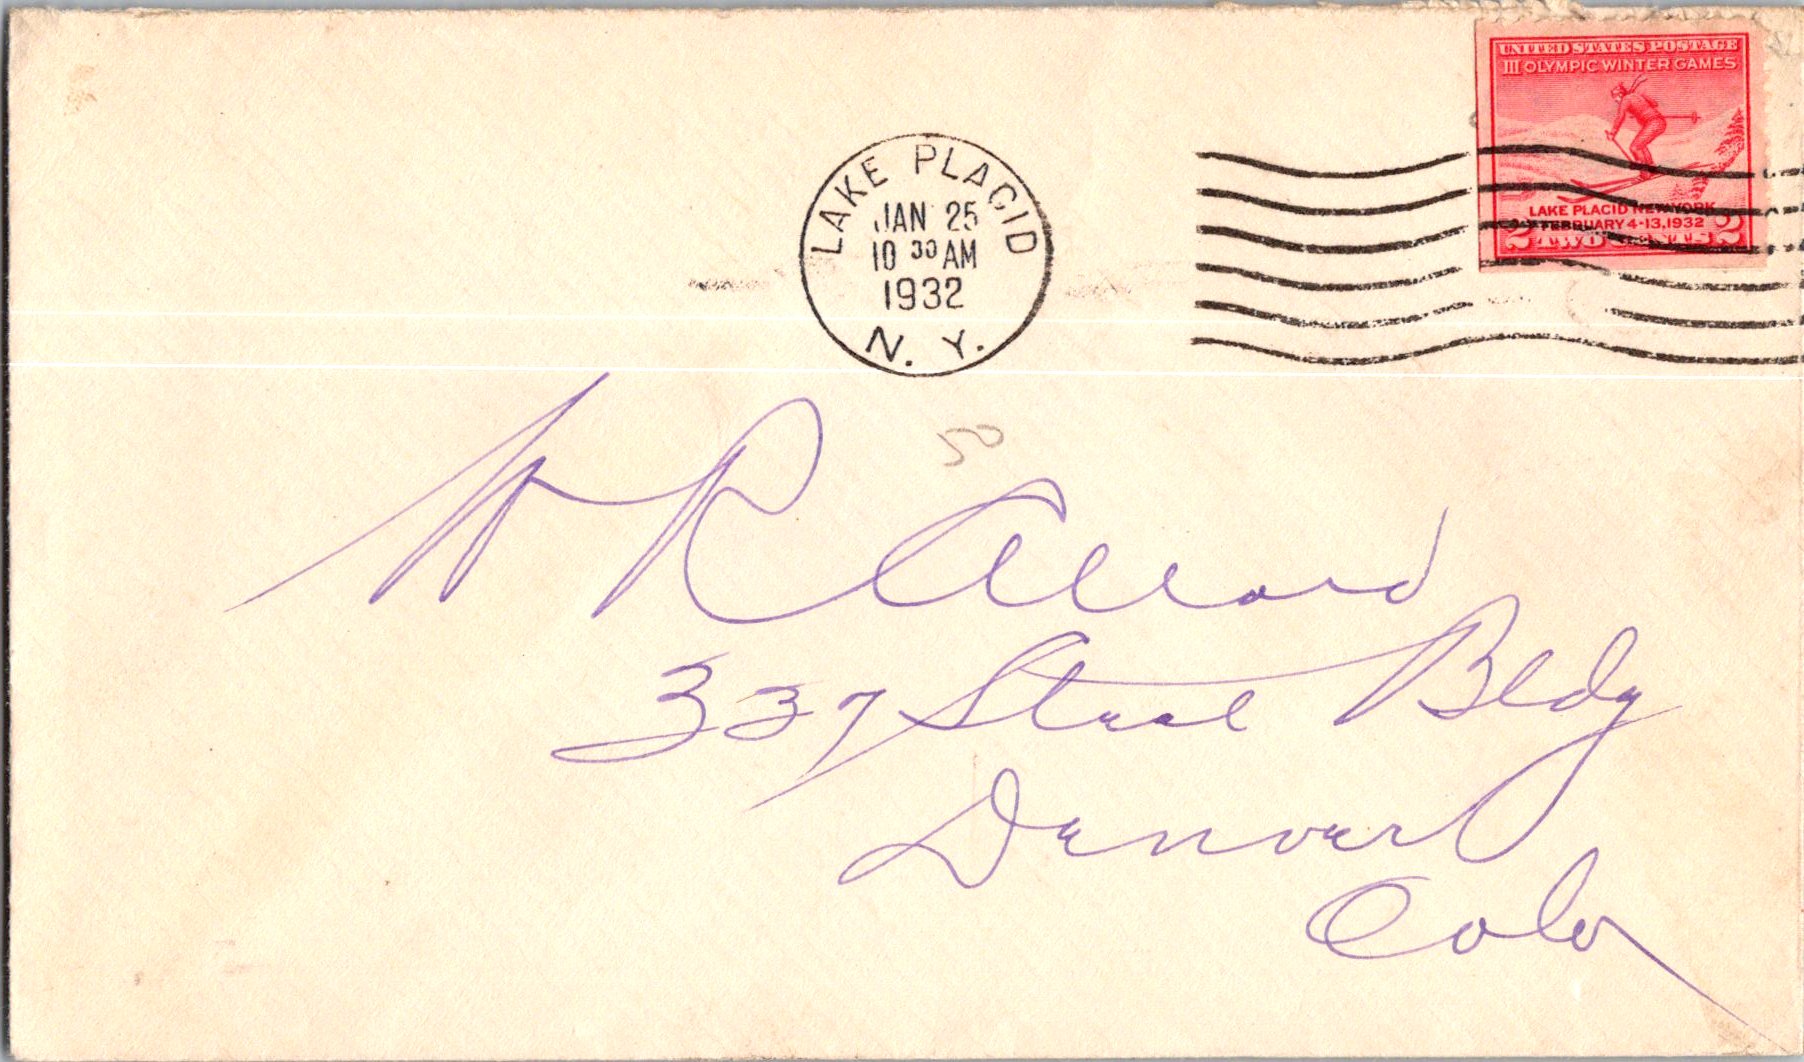 UNITED STATES POSTAGE
III OLYMPIC WINTER GAMES
LAKE PLACID NEW YORK
FEBRUARY 4-13, 1932
2 TWO CENTS 2
LAKE PLACID
JAN 25
10 30 AM
1932
N. Y.
50
W R Allard
337 Steel Bldg
Denver
Colo